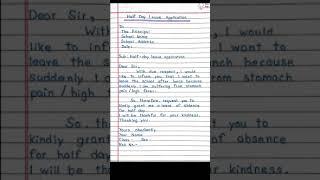 Dear Sir,
With
I would
like to infor
I want to
leave the
nch because
suddenly I
om stomach
pain / high
So. there
you to
kindly grant
of absence
for half day
I will be th
kindness.
Half Day Leave Application
To
The Principal
School Name
School Address
Date:
Sub: Half-day leave application
Dear Sir,
With due respect, I would
like to inform you that I want to
leave the school after lunch because
suddenly I am suffering from stomach
pain / high fever.
So, therefore, request you to
kindly grant me a leave of absence
for half day.
I will be thankful for your kindness.
Thanking you.
Yours obediently
Your Name
Class - Sec -
Roll No.-